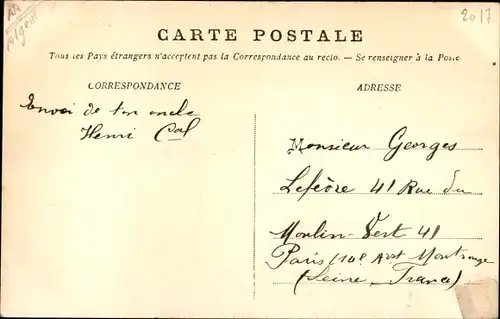 Alger
2017
CARTE POSTALE
Tous les Pays étrangers n'acceptent pas la Correspondance au recto. — Se renseigner à la Poste
CORRESPONDANCE
ADRESSE
Envoi de ton oncle
Henri
Monsieur Georges
Lefèvre 41 Rue du
Moulin-Vert 41
Paris (14e Arrt Montrouge
(Seine - France)